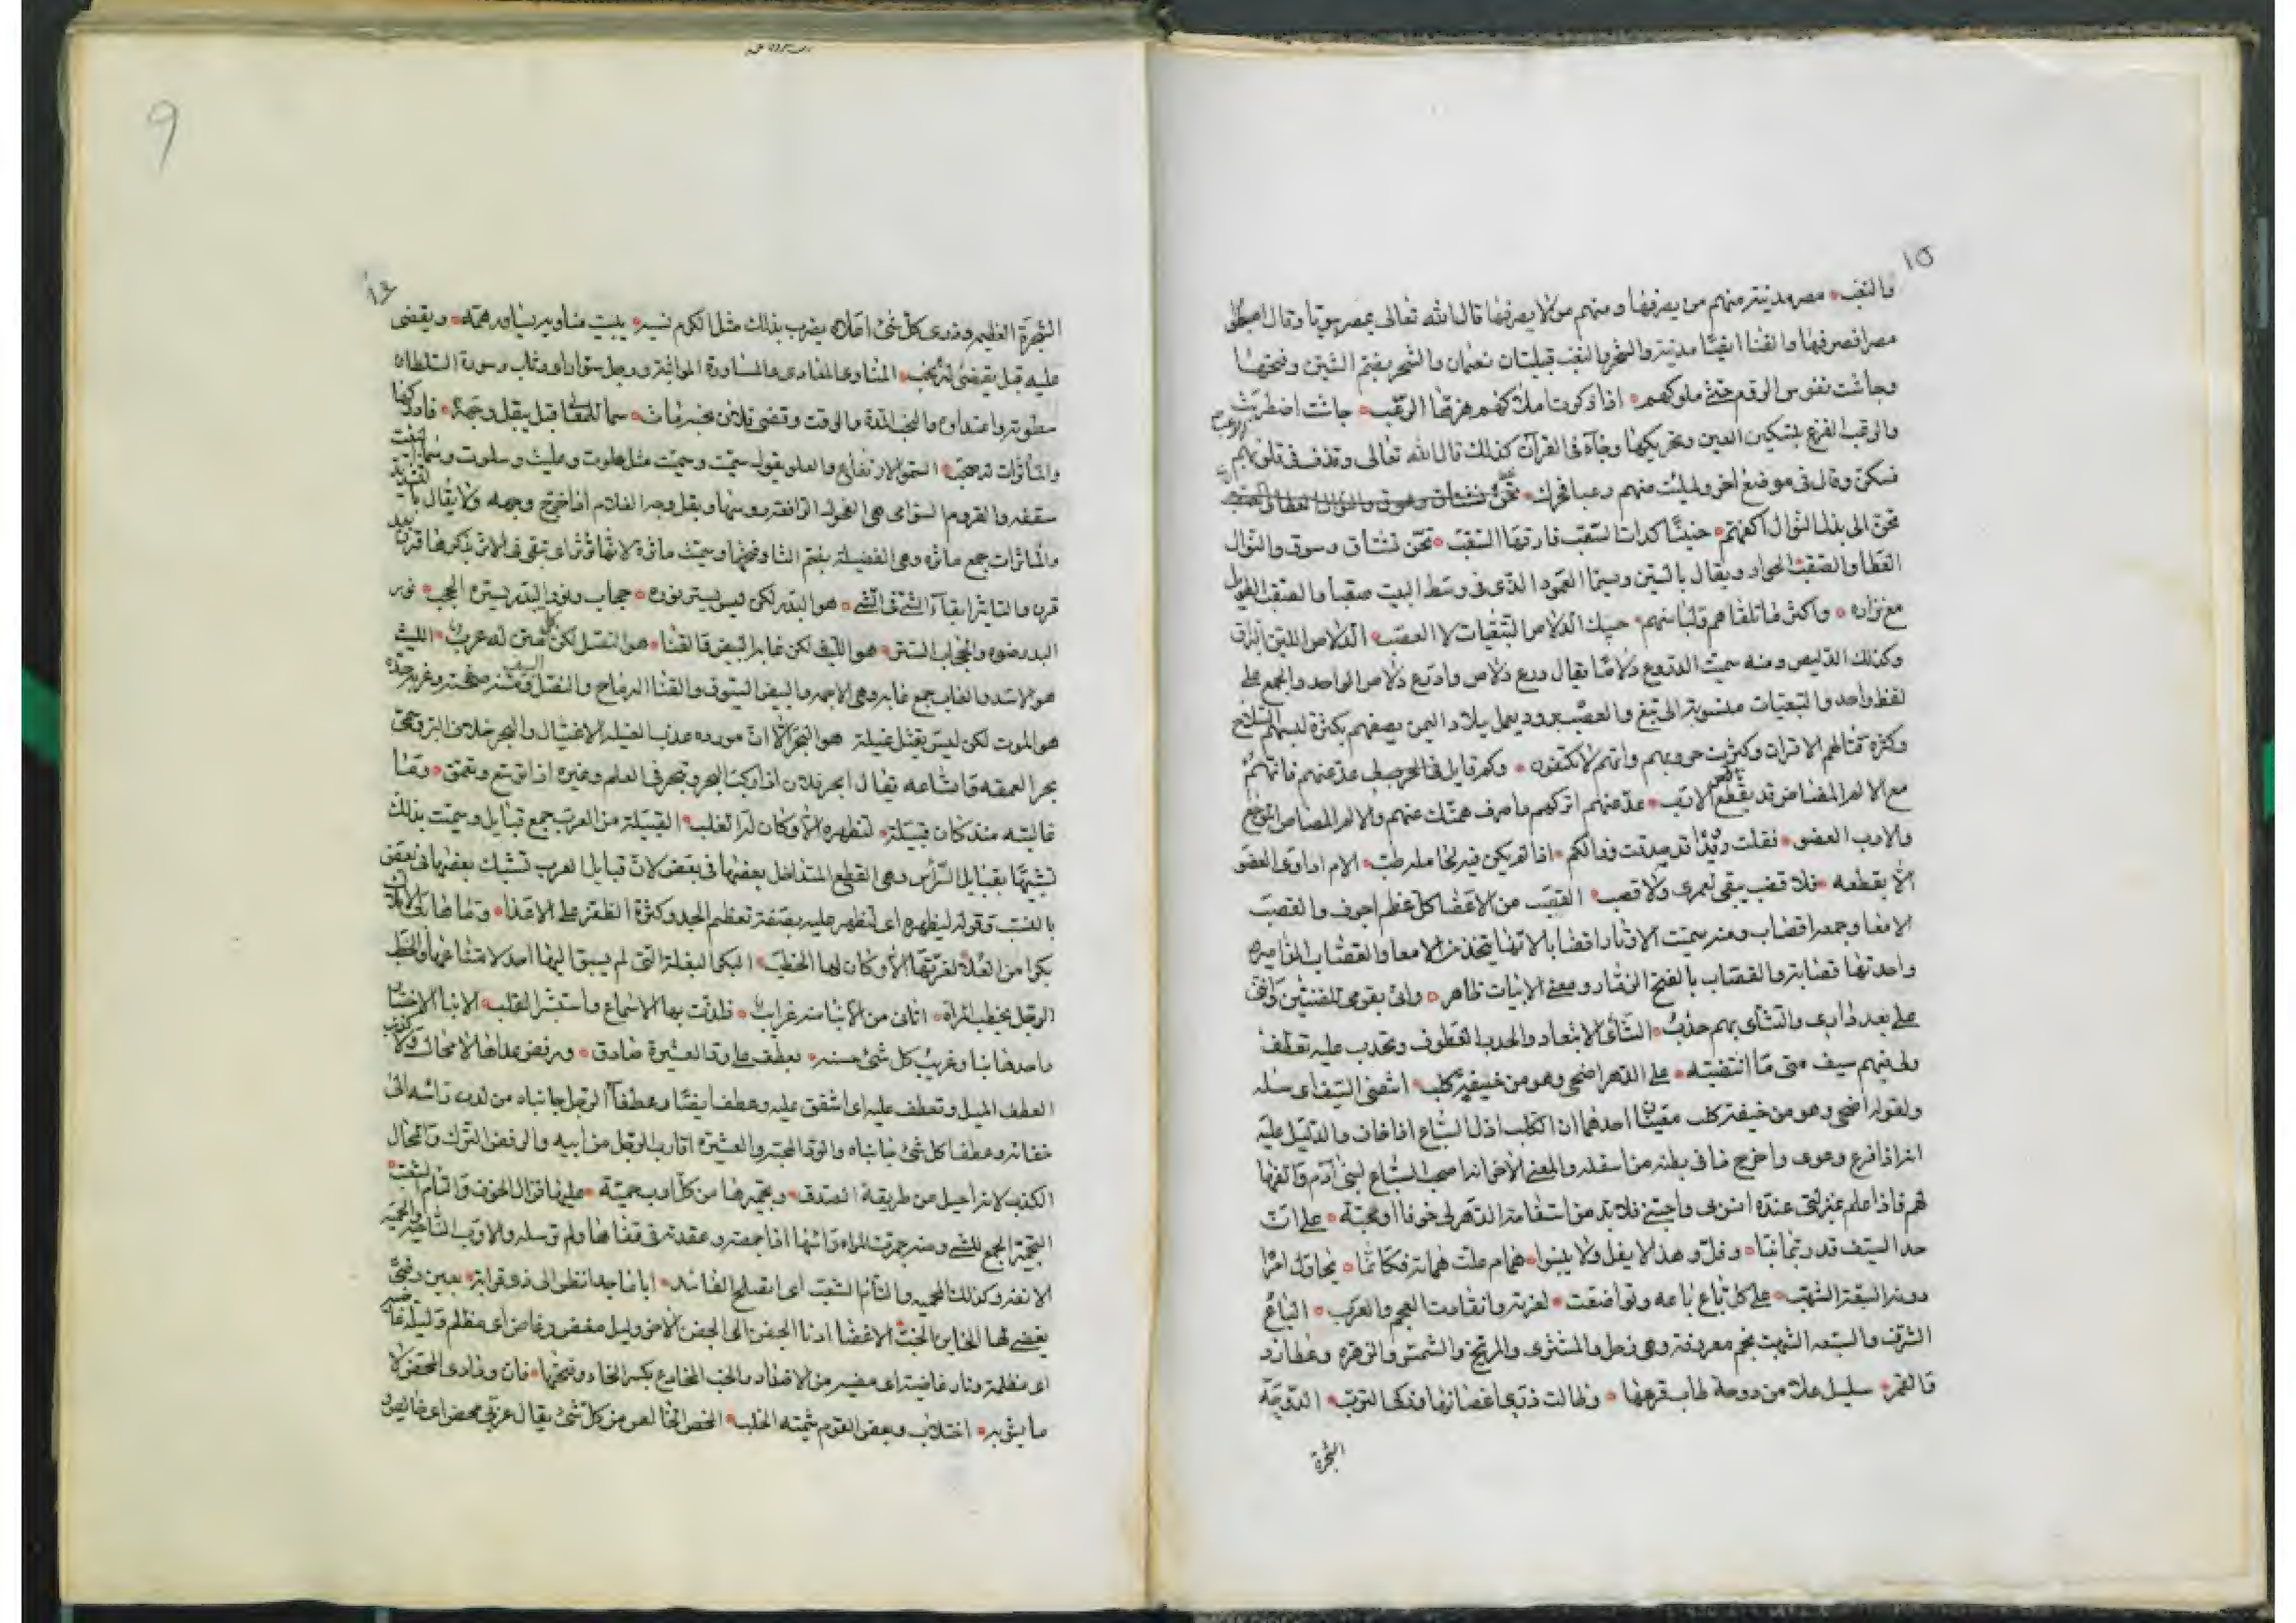 ١٥
والنغب مصر مدينة منهم من يصرفها و منهم من لا يصرفها قال الله تعالى بمصر بيوتا وقال اهبطوا
مصرا فصرفها والقنا ايضا مدينة والشحر والنغب قبيلتان نعمان والشحر بفتح الشين وفتحها
وجاشت نفوس الروم حتى ملوكهم اذا ذكرت املاكهم هزها الرعب جاشت اضطربت
والرعب الفزع بتسكين العين وتحريكها وجآء فى القرآن كذلك قال الله تعالى وقذف فى قلوبهم الرعب
فسكن وقال فى موضع اخر ولملئت منهم رعبا فحرك
تحن الى بذل النوال اكفهم حنينا كذات السقب فارقها السقب تحن تشتاق وسوق والنوال
العطا والصقب الحوار ويقال بالسين وسمى العمود الذى فى وسط البيت صقبا والصقب الطويل
مع نزاره واكثر ما تلقاهم ولباسهم حبيك الدلاص التبعيات لا العصب الدلاص اللين البراق
وكذلك الدليص ومنه سميت الدروع دلاصا يقال درع دلاص وادرع دلاص الواحد والجمع على
لفظ واحد والتبعيات منسوبة الى تبع والعصب برود يعمل ببلاد اليمن يصفهم بكثرة لبسهم السلاح
وكثرة قتالهم الاقران وكثرت حروبهم وانهم لا يكتفون وكم قايل فى الحرص لى عد عنهم فانهم
مع الالم المضاض قد يقطع الارب عد عنهم اتركهم واصرف همتك عنهم والالم المضاض الموجع
والارب العضو فقلت رويدا قد صدقت وذالكم اذا لم يكن فيه لحاملة طب الام اداوى العضو
الا بقطعه فلا قضب يبقى لعمرى ولا قصب القصب من الاعضا كل عظم اجوف والقصب
الامعا وجمعه اقصاب ومنه سميت الاوتار اقصابا لانها يتخذ من الامعا والقصاب المزامير
واحدتها قصابة والقصاب بالفتح الزمار ومعنى الابيات ظاهر وانى بقومى للضنين واننى
على بعد دارى والتنآئى بهم حدب التنآئى الابتعاد والحدب العطوف وتحدب عليه تعطف
ولى فيهم سيف متى ما انتضيته على الدهر اضحى وهو من خيفة كلب انتضى السيف اى سله
ولقوله اضحى وهو من خيفة كلب معنيان احدهما ان الكلب اذل السباع اذا خاف والدليل عليه
انه اذا فزع وعوى واخرج ما فى بطنه من اسفله والمعنى الاخر انه اصحب السباع لبنى آدم والفها
لهم فاذا علم عبرتى عنده انس بى واحبنى فلا بد من استقامة الدهر لى خوفا او محبة على ان
حد السيف قد ربما نبا وفل وهذا لا يفل ولا ينبوا همام علت همانه فكانما يحاول امرا
دونه السبعة الشهب على كل باع باعه وتواضعت لعزته وانقادت العجم والعرب الباع
الشرف والسبعه الشهب نجم معروفة وهى زحل والمشترى والمريخ والشمس والزهره وعطارد
والقمر سليل علا من دوحة طاب فرعها وطالت ذرى اغصانها وزكى الترب الدوحة
الشجرة
١٦
الشجرة العظيم وذرى كل شئ اعلاه يضرب بذلك مثل الكرم نسبه يبيت مناويه يساوره همه ويقضى
عليه قبل يقضى له نحب المناوى المعادى والمساورة المواثبة ورجل سوار اى وثاب وسورة السلطان
سطوته واعتداوه والنحب المدة والوقت وقضى فلان نحبه مات سما للعلى قبل يبقل وجهه فادركها
والمأثرات له صحب السمو الارتفاع والعلو يقول سميت وسميت مثل علوت وعليت وسلوت
سقفه والقروم السوامى هى الفحول الرافعة روسها وبقل وجه الغلام اذا خرج وجهه ولا يقال بالتشديد
والماثرات جمع ماثره وهى الفضيلة بضم الثا وفتحها وسميت ماثرة لانها توثر اى تبقى فى الاثر يذكرها قرن بعد
قرن والتاثير ابقآء الشئ فى الشئ هو البدر لكن ليس يستر نوره حجاب ونور البدر يستره الحجب نور
البدر ضوه والحجاب الستر هو الليث لكن غابه البيض والقنا هو النصل لكن كل متن له غرب الليث
هو الاسد والغاب جمع غابه وهى الاجمه والبيض السيوف والقنا الرماح والنصل السيف ومتنه صفحته وغربه حده
هو الموت لكن ليس يقتل غيلة هو البحر الا ان مورده عذب الغيله الاغتيال والبحر خلاف البر وسمى
بحرا لعمقه واتساعه يقال ابحر فلان اذا ركب البحر وتبحر فى العلم وغيره اذا توسع وتعمق وما
غالبته منذ كان قبيلة لتظهره الا وكان له الغلب القبيلة من العرب جمع قبايل وسميت بذلك
تشبيها بقبايل الرأس وهى القطع المتداخل بعضها فى بعض لان قبايل العرب تشبك بعضها فى بعض
بالنسب وقوله ليظهره اى لتظهر عليه بصفة تعظيم الجد وكثرة الظفر على الاعدا
بكرا من العلا لغربتها الا وكان لها الخطب البكر البقلة التى لم يسبق اليها احد لامتناعها والخطب
الرجل يخطب المراة اتانى من الانبا عنه غرايب فلذت بها الاسماع واستبشر القلب الانبا الاخبار
واحدها نبا وغريب كل شئ حسنه بعطف على ود العشيرة صادق ورفض عداها لا محال ولا كذب
العطف الميل وتعطف عليه اى اشفق عليه وعطف ايضا وعطفآ الرجل جانباه من لدن راسه الى
عطفا كل شئ جانباه والود المحبة والعشيرة اقارب الرجل من ابيه والرفض الترك والمحال
الكذب لانه احيل عن طريقة الصدق وتجميرها من كل اوب حمية عليها وزال الخوف والتام الشعب
التجمير الجمع للشئ ومنه جمرت المراه راسها اذا جمعته وعقدته فى قفاها ولم ترسله والاوب الناحية والحمية
الانفه وكذلك المحميه والتأم الشعب اى انصلح الفاسد ابا ماجد انظر الى ذو قرابة بعين رضى
يغضى لها الخاين الخب الاغضا ادنا الجفن الى الجفن الاخر وليل مغض وغاض اى مظلم وليلة غاضيه
اى مظلمة ونار غاضية اى مضيه من الاضداد والخب المخادع بكسر الخاء وفتحها فان ودادى المحض لا
ما يشوبه اختلاب وبعض القوم شيمته الخلب المحض الخالص من كل شئ يقال عربى محض اى خالص
9